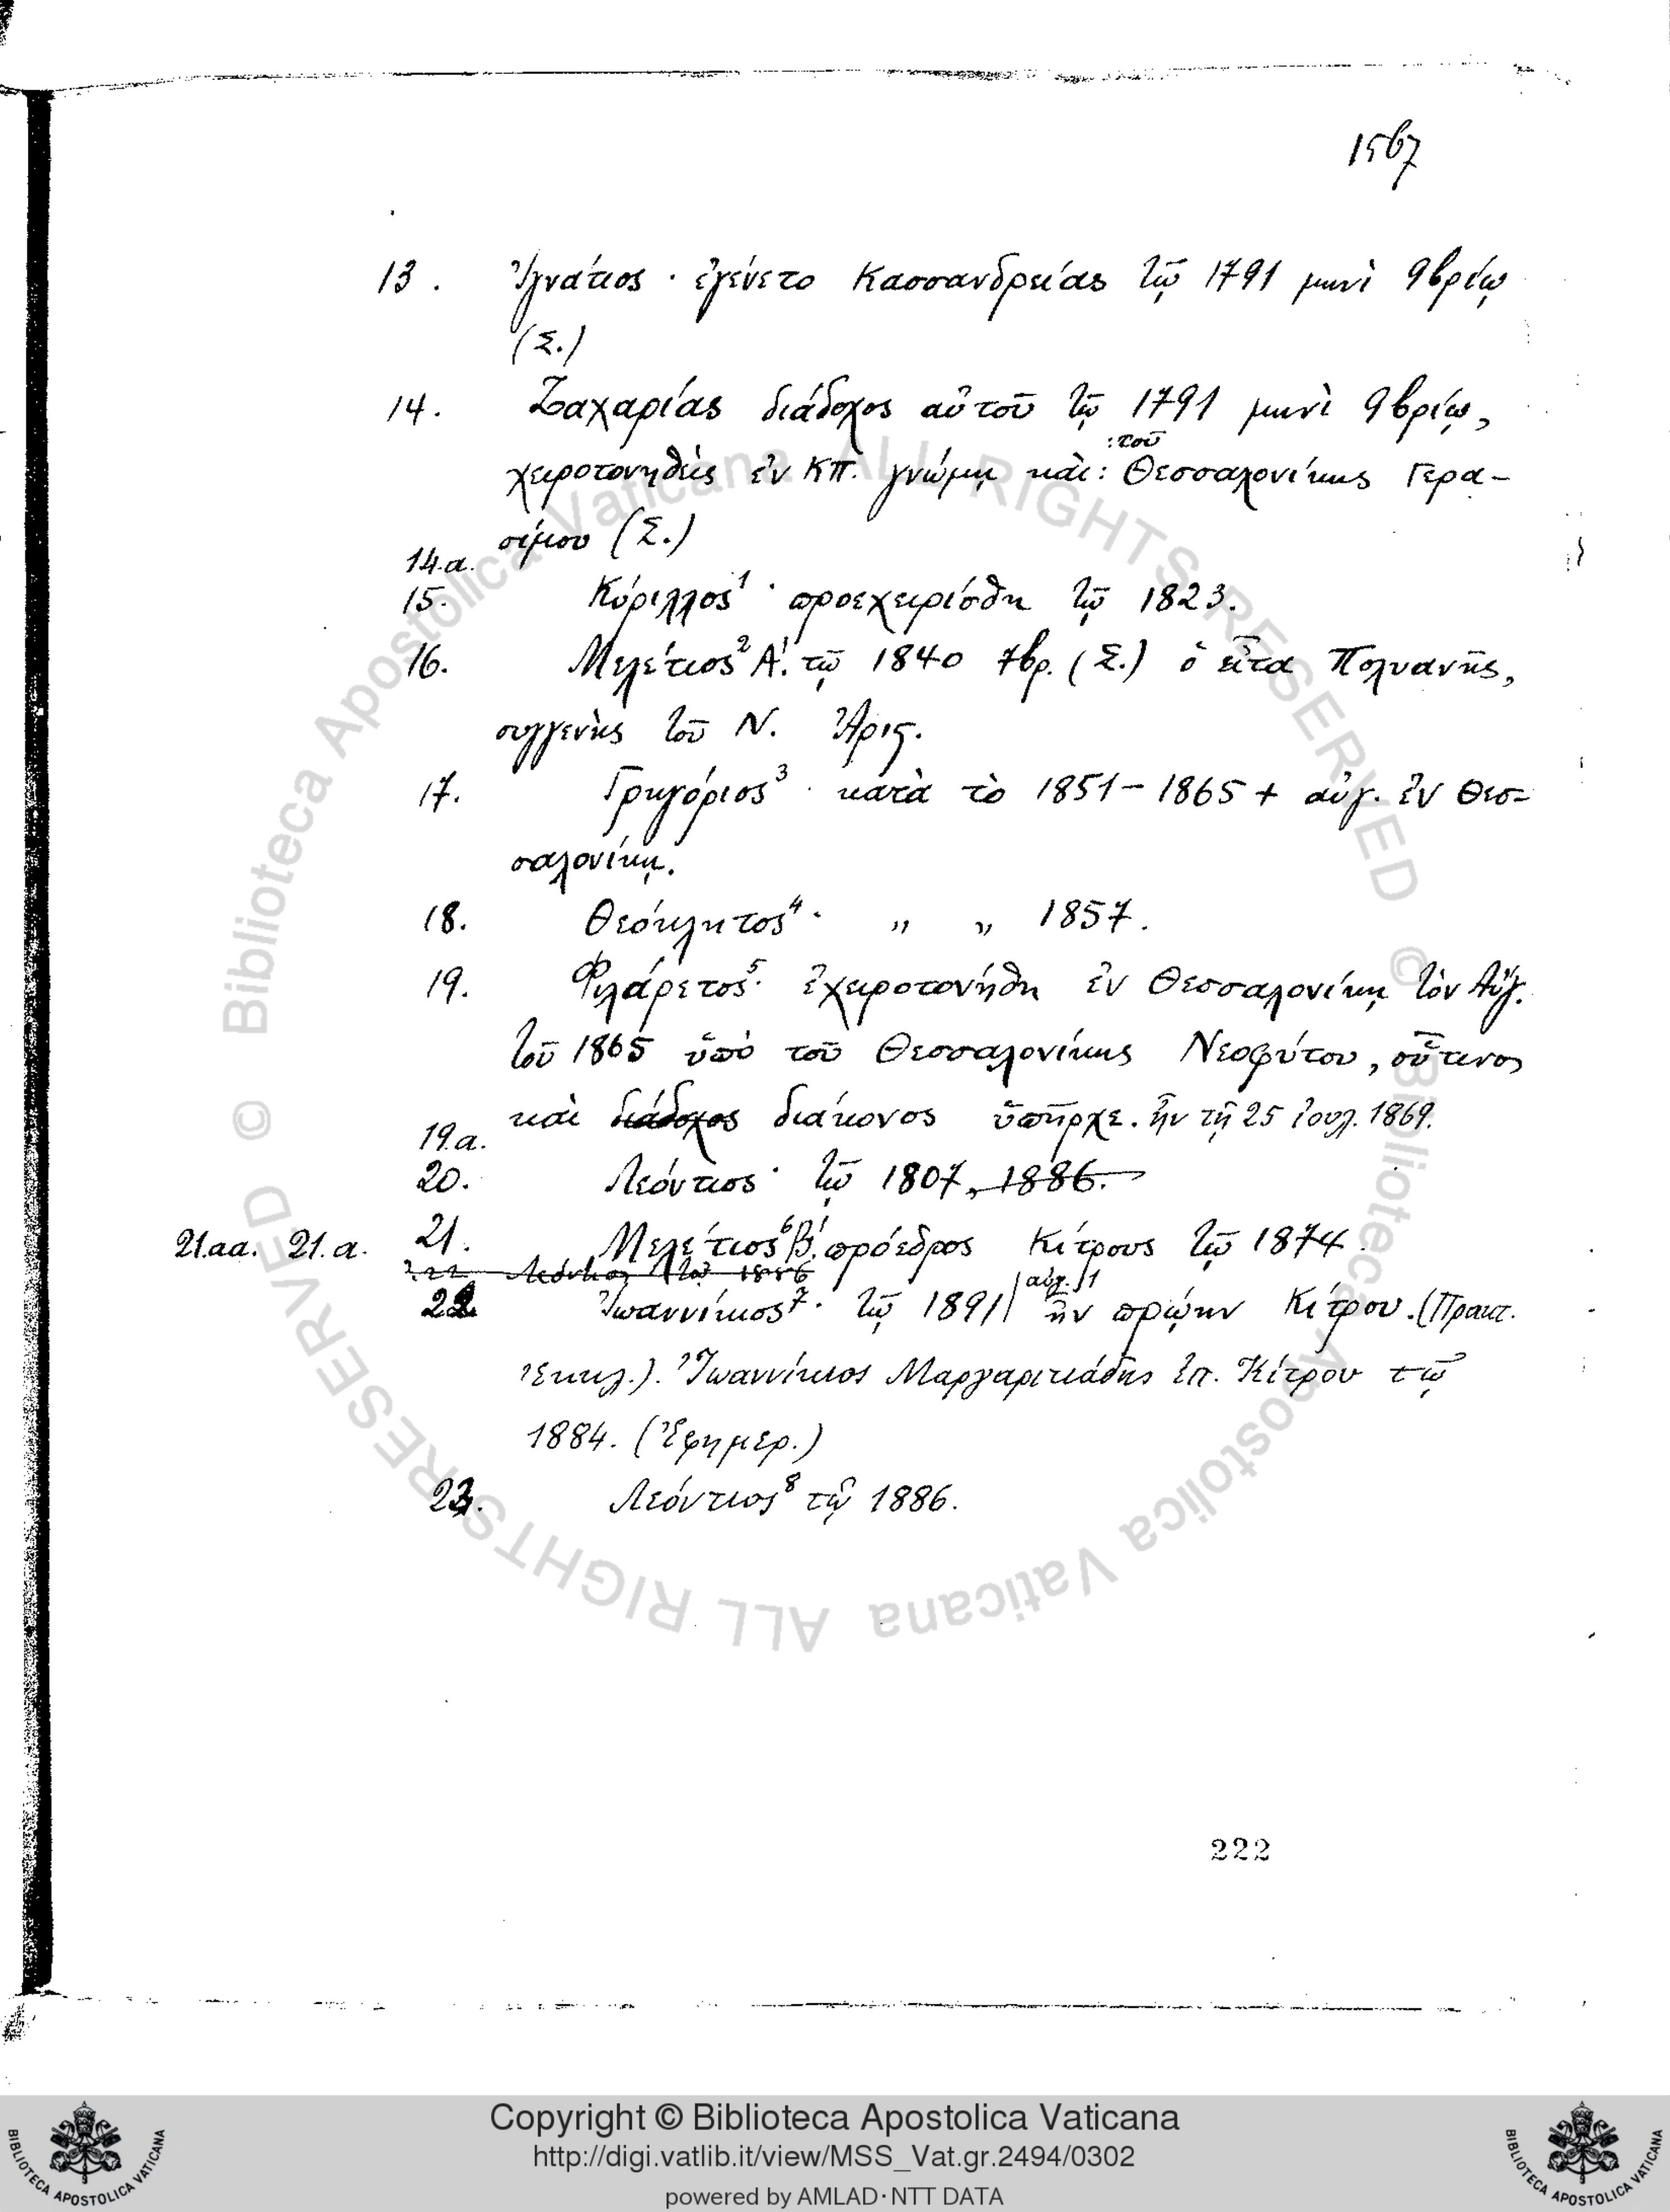 1567
13. Ἰγνάτιος · ἐγένετο Κασσανδρείας τῷ 1791 μηνὶ 9βρίῳ
(Σ.)
14. Ζαχαρίας διάδοχος αὐτοῦ τῷ 1791 μηνὶ 9βρίῳ,
:τοῦ
χειροτονηθεὶς ἐν ΚΠ. γνώμῃ καὶ: Θεσσαλονίκης Γερα-
σίμου (Σ.)
14.α.
15. Κύριλλος¹ · προεχειρίσθη τῷ 1823.
16. Μελέτιος² Α΄. τῷ 1840 7βρ. (Σ.) ὁ εἶτα Πολυανῆς,
συγγενὴς τοῦ Ν. Ἀρις.
17. Γρηγόριος³ · κατὰ τὸ 1851-1865 + αὐγ. ἐν Θεσ=
σαλονίκῃ.
18. Θεόκλητος⁴ · " " 1857.
19. Φιλάρετος⁵· ἐχειροτονήθη ἐν Θεσσαλονίκῃ τὸν Αὔγ.
τοῦ 1865 ὑπὸ τοῦ Θεσσαλονίκης Νεοφύτου, οὗτινος
καὶ διάδοχος διάκονος ὑπῆρχε. ἦν τῇ 25 ἰουλ. 1869.
19.α.
20. Λεόντιος · τῷ 1807, 1886.
21.αα. 21.α. 21. Μελέτιος⁶ Β΄. πρόεδρος Κίτρους τῷ 1874.
Λεόντιος τῷ 1886
αὐγ. 1
22 Ἰωαννίκιος⁷ · τῷ 1891 ἦν πρῴην Κίτρου. (Πρακτ.
Ἐκκλ.). Ἰωαννίκιος Μαργαριτιάδης ἐπ. Κίτρου τῷ
1884. (Ἐφημερ.)
23. Λεόντιος⁸ τῷ 1886.
222
© Biblioteca Apostolica Vaticana ALL RIGHTS RESERVED © Biblioteca Apostolica Vaticana ALL RIGHTS RESERVED
BIBLIOTECA APOSTOLICA VATICANA
Copyright © Biblioteca Apostolica Vaticana
http://digi.vatlib.it/view/MSS_Vat.gr.2494/0302
powered by AMLAD·NTT DATA
BIBLIOTECA APOSTOLICA VATICANA